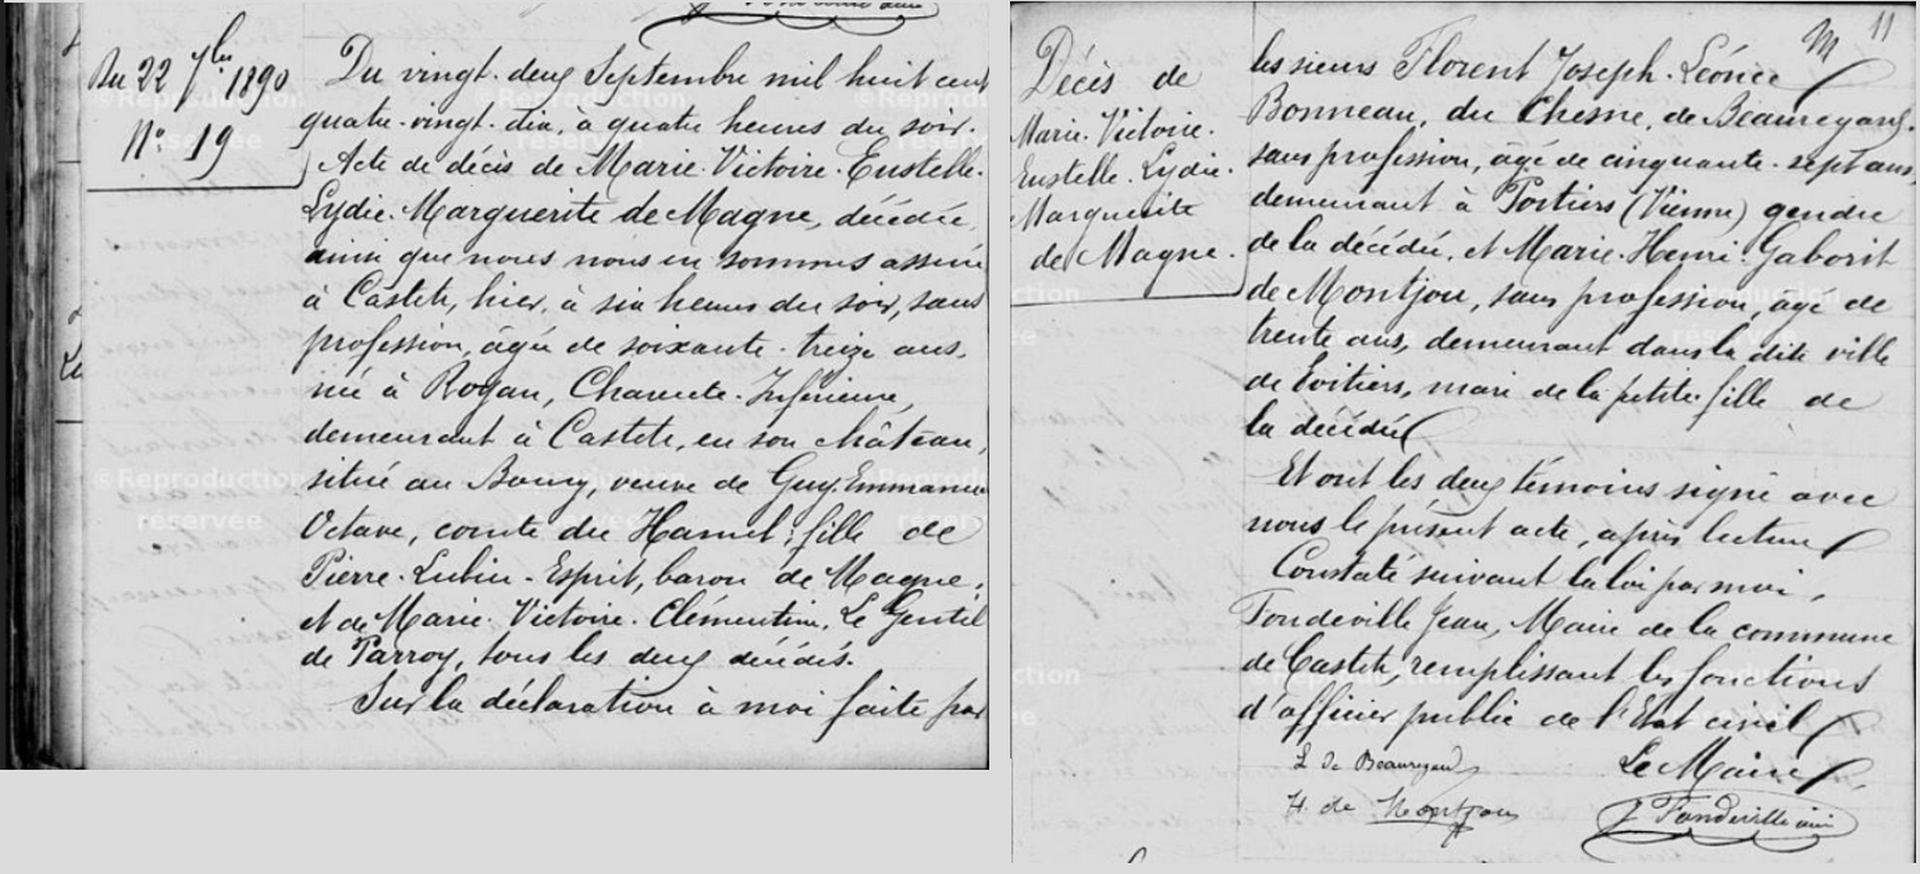 Du 22 7bre 1890
N° 19
Du vingt-deux Septembre mil huit cent
quatre-vingt-dix, à quatre heures du soir.
Acte de décès de Marie-Victoire-Eustelle-
Lydie-Marguerite de Magne, décédée,
ainsi que nous nous en sommes assuré
à Castets, hier, à six heures du soir, sans
profession, âgée de soixante-treize ans,
née à Royan, Charente-Inférieure,
demeurant à Castets, en son château,
situé au Bourg, veuve de Guy-Emmanuel
Octave, comte du Hamel; fille de
Pierre-Lubin-Esprit, baron de Magne,
et de Marie-Victoire-Clémentine, Le Gentil
de Parroy, tous les deux décédés.
Sur la déclaration à moi faite par
M 11
Décès de
Marie-Victoire-
Eustelle-Lydie-
Marguerite
de Magne.
les sieurs Florent Joseph-Léonce
Bonneau, du Chesne, de Beauregard,
sans profession, âgé de cinquante-sept ans,
demeurant à Poitiers (Vienne) gendre
de la décédée, et Marie-Henri-Gaborit
de Montjou, sans profession, âgé de
trente ans, demeurant dans la dite ville
de Poitiers, mari de la petite-fille de
la décédée
Et ont les deux témoins signé avec
nous le présent acte, après lecture
Constaté suivant la loi par moi,
Fondeville Jean, Maire de la commune
de Castets, remplissant les fonctions
d'officier public de l'Etat civil
L de Beauregard
Le Maire
H. de Montjou
J Fondeville ainé
©Reproduction
réservée